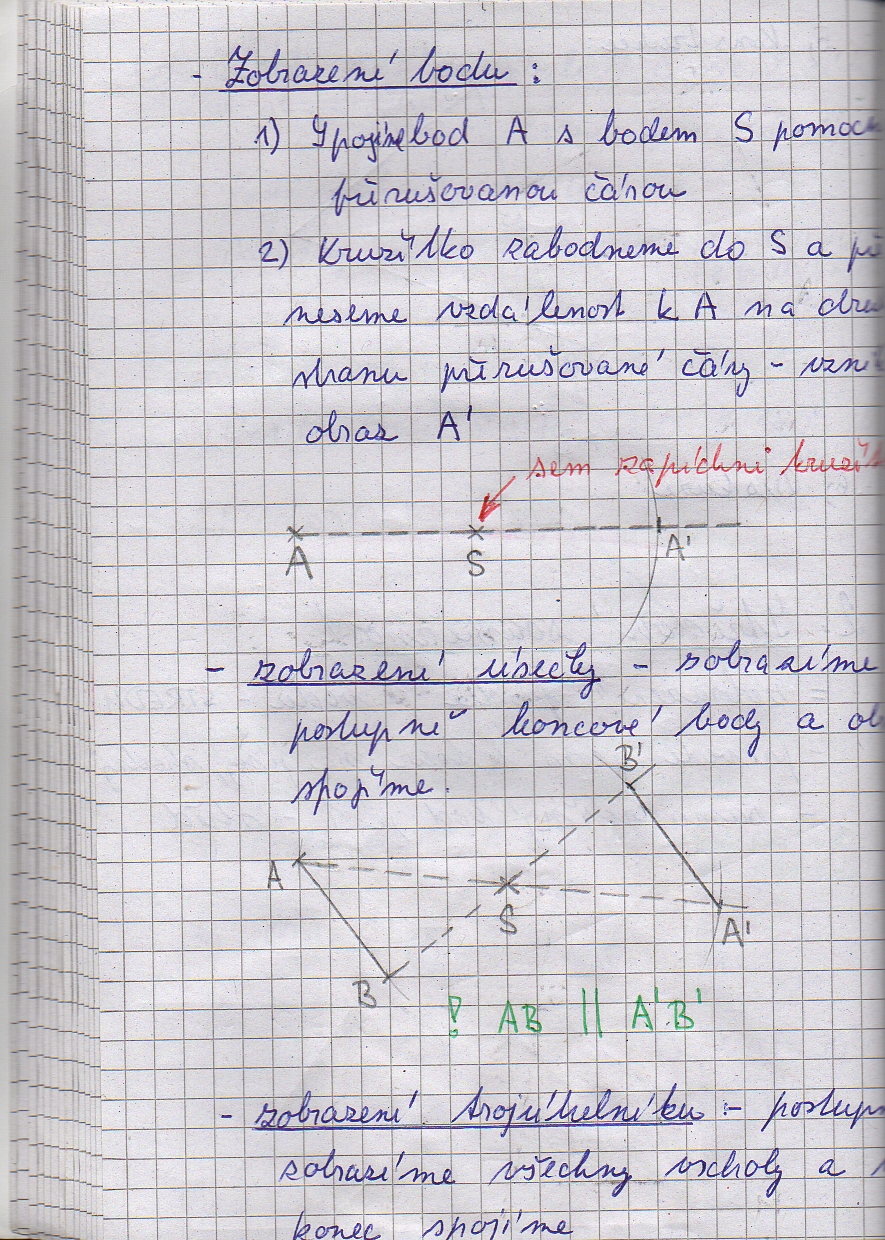 - Zobrazení bodu :
1) Spojíme bod A s bodem S pomoc
přerušovanou čárou
2) Kružítko zabodneme do S a pře
neseme vzdálenost k A na dru
stranu přerušované čáry - vzni
obraz A'
sem zapíchni kruží
A S A'
- zobrazení úsečky - zobrazíme
postupně koncové body a ob
spojíme.
B'
A
S
A'
B
! AB || A'B'
- zobrazení trojúhelníku :- postup
zobrazíme všechny vrcholy a
konec spojíme